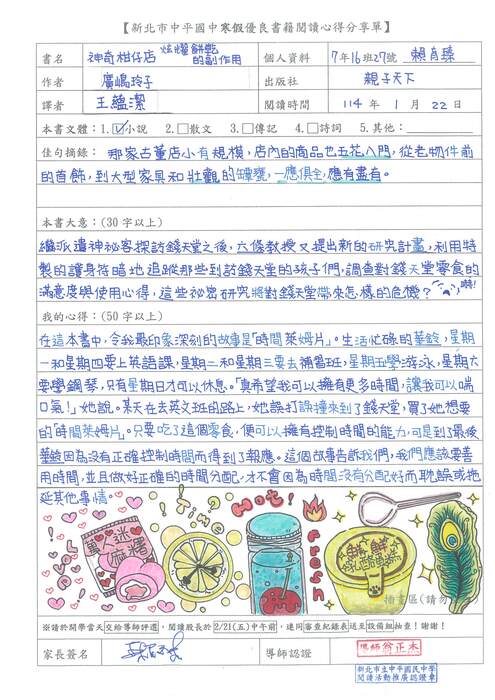 【新北市中平國中寒假優良書籍閱讀心得分享單】
書名 神奇柑仔店 炫耀餅乾的副作用 個人資料 7年16班27號 賴宥臻
作者 廣嶋玲子 出版社 親子天下
譯者 王蘊潔 閱讀時間 114年1月22日
本書文體：1.☑小說 2.□散文 3.□傳記 4.□詩詞 5.其他：
佳句摘錄： 那家古董店小有規模，店內的商品也五花八門，從老物件前
的首飾，到大型家具和壯觀的，一應俱全，應有盡有。
本書大意：(30字以上)
繼派遣神秘客探訪錢天堂之後，六條教授又提出新的研究計畫，利用特
製的護身符暗地追蹤那些到訪錢天堂的孩子們，調查對錢天堂零食的
滿意度與使用心得，這些祕密研究將對錢天堂帶來怎樣的危機？
我的心得：(50字以上)
在這本書中，令我最印象深刻的故事是「時間萊姆片」。生活忙碌的華鈴，星期
一和星期四要上英語課，星期二和星期三要去補習班，星期五學游泳，星期六
要學鋼琴，只有星期日才可以休息。「真希望我可以擁有更多時間，讓我可以喘
口氣！」她說。某天在去英文班的路上，她誤打誤撞來到了錢天堂，買了她想要
的「時間萊姆片」。只要吃了這個零食，便可以擁有控制時間的能力，可是到了最後
華鈴因為沒有正確控制時間而得到了報應。這個故事告訴我們，我們應該要善
用時間，並且做好正確的時間分配，才不會因為時間沒有分配好而耽誤或拖
延其他事情。
Love
萬人迷麻糬
Time
Hot!
Fresh
新鮮
插畫區(請勿
※請於開學當天交給導師評選，閱讀股長於2/21(五)中午前，連同審查紀錄表送至設備組抽查！謝謝！
家長簽名 導師認證 導師翁正杰
新北市立中平國民中學
閱讀活動推廣認證章